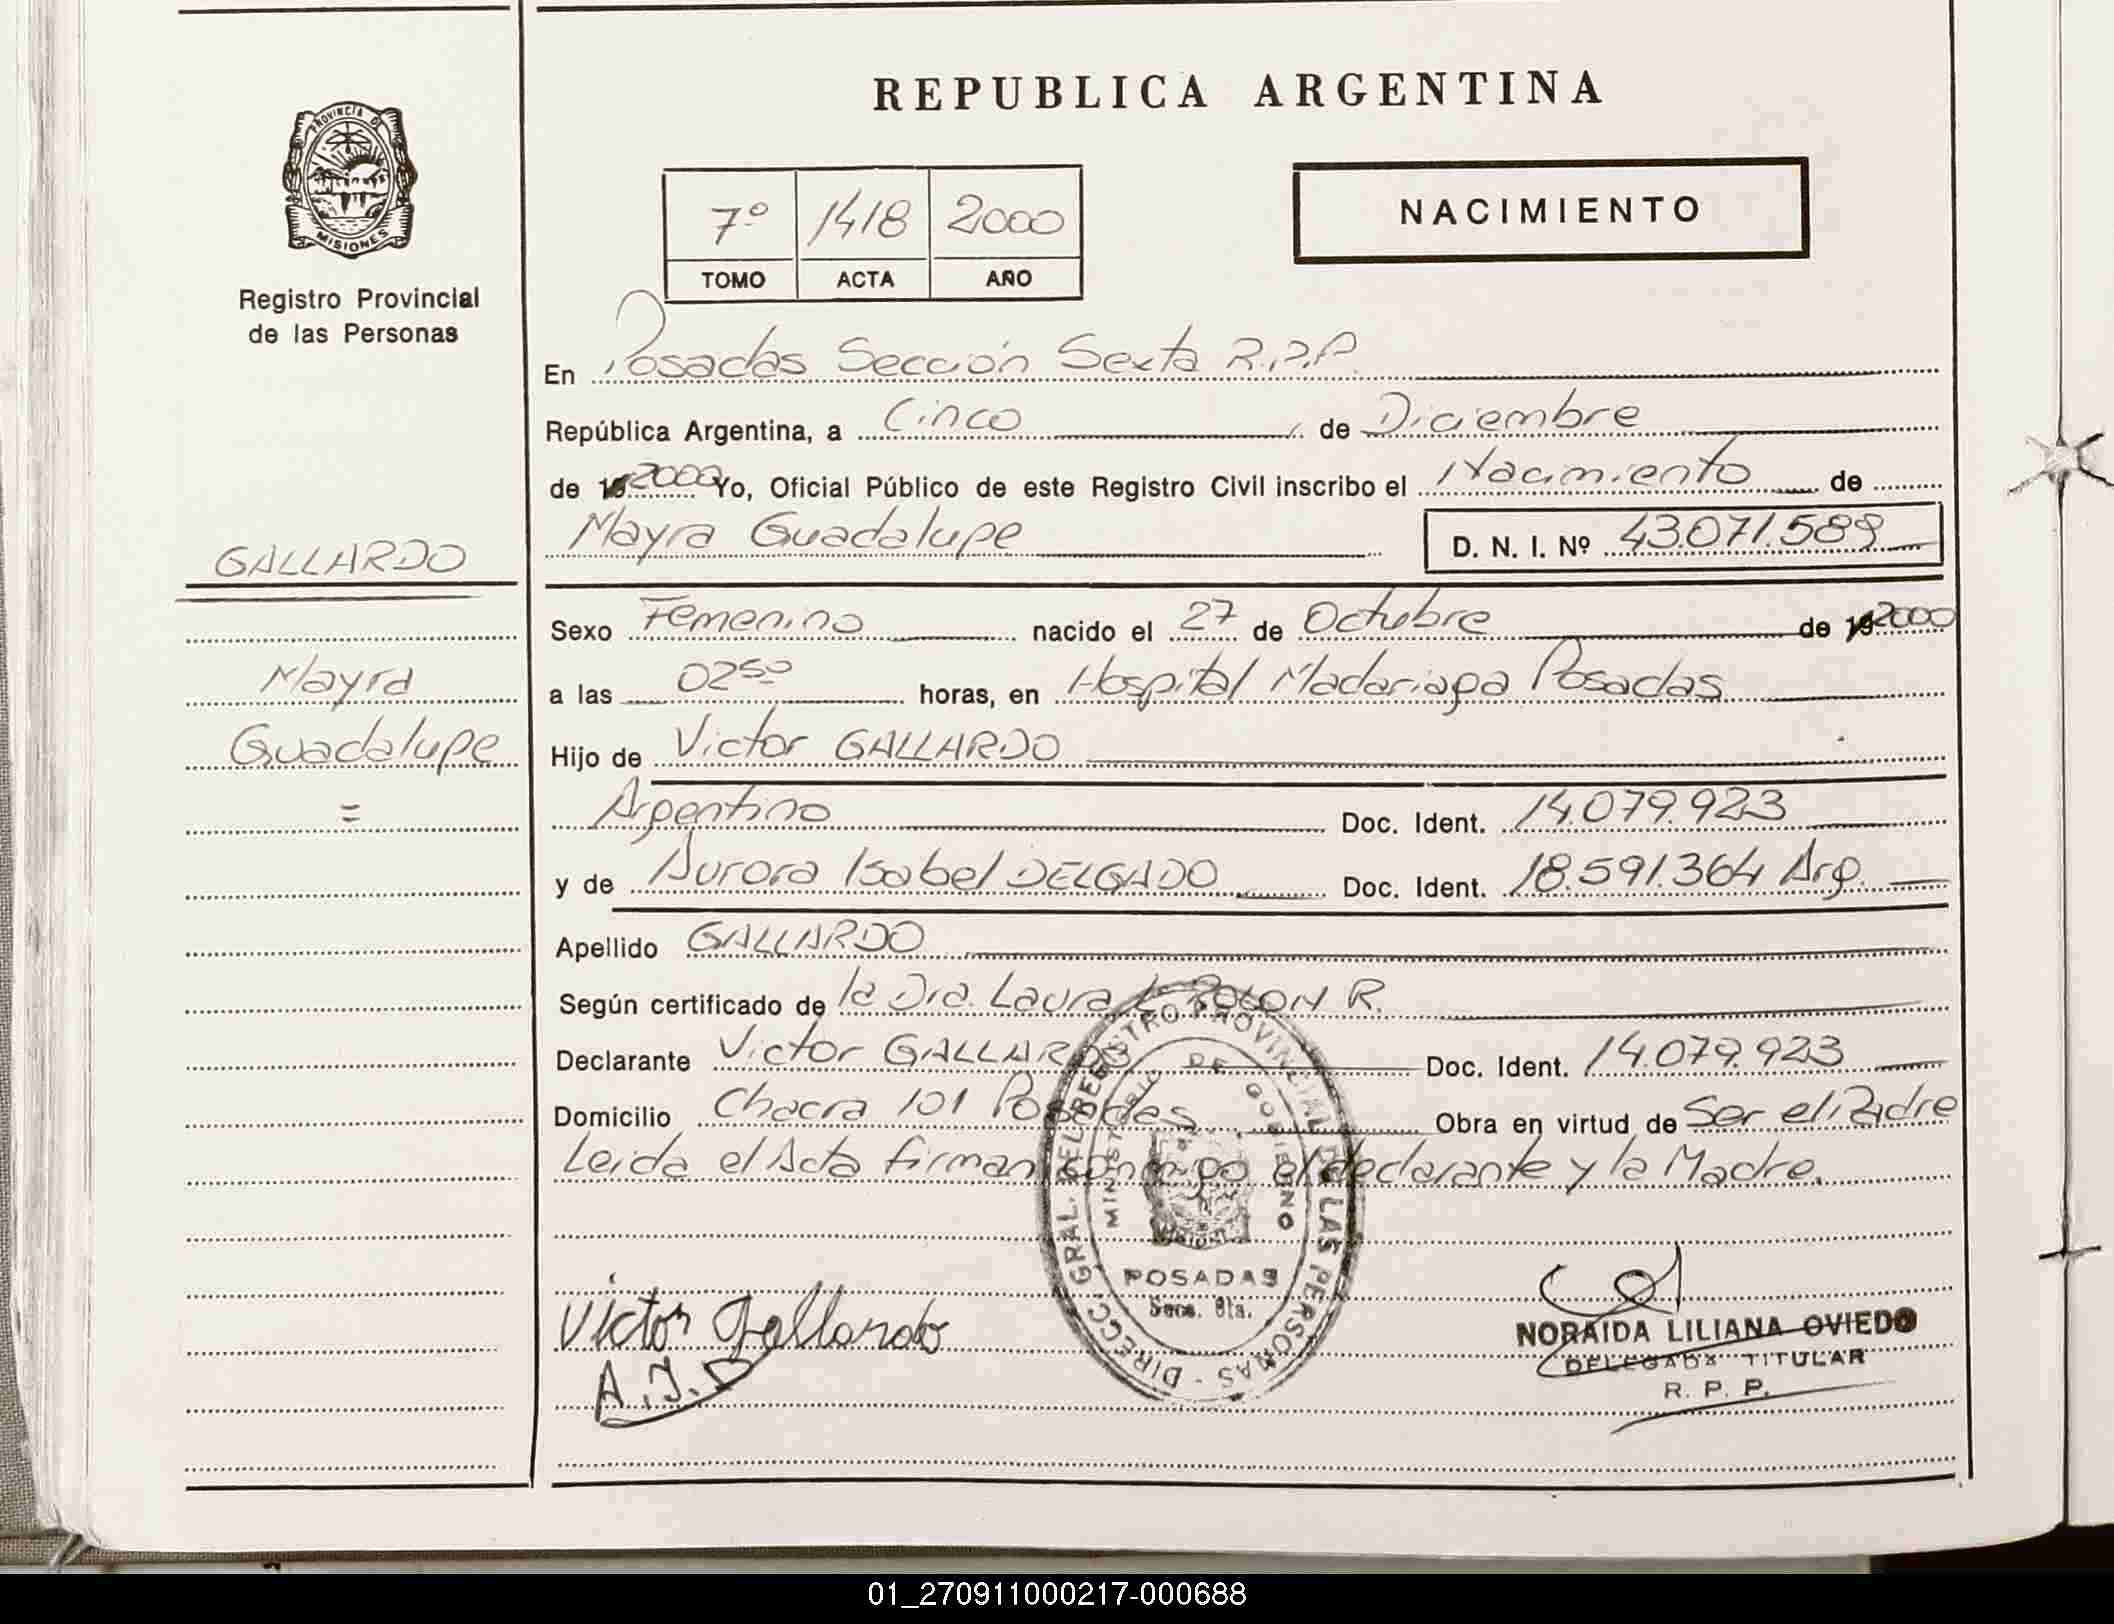 REPUBLICA ARGENTINA
PROVINCIA DE
MISIONES
Registro Provincial
de las Personas
7º 1418 2000
TOMO ACTA AÑO
NACIMIENTO
En Posadas Sección Sexta R.P.P.
República Argentina, a Cinco de Diciembre
de 19 2000 Yo, Oficial Público de este Registro Civil inscribo el Nacimiento de
Mayra Guadalupe D. N. I. Nº 43.071.589
GALLARDO
Mayra
Guadalupe
=
Sexo Femenino nacido el 27 de Octubre de 19 2000
a las 02⁵⁰ horas, en Hospital Madariaga Posadas
Hijo de Victor GALLARDO
Argentino Doc. Ident. 14.079.923
y de Aurora Isabel DELGADO Doc. Ident. 18.591.364 Arg.
Apellido GALLARDO
Según certificado de la Dra. Laura R.
Declarante Victor GALLARDO Doc. Ident. 14.079.923
Domicilio Chacra 101 Posadas Obra en virtud de Ser el Padre
Leida el Acta firman conmigo el declarante y la Madre.
DIRECC. GRAL. DEL REGISTRO PROVINCIAL DE LAS PERSONAS
MINISTERIO DE GOBIERNO
POSADAS
Secc. 6ta.
Victor Gallardo
A.I.D
NORAIDA LILIANA OVIEDO
DELEGADA TITULAR
R. P. P.
01_270911000217-000688